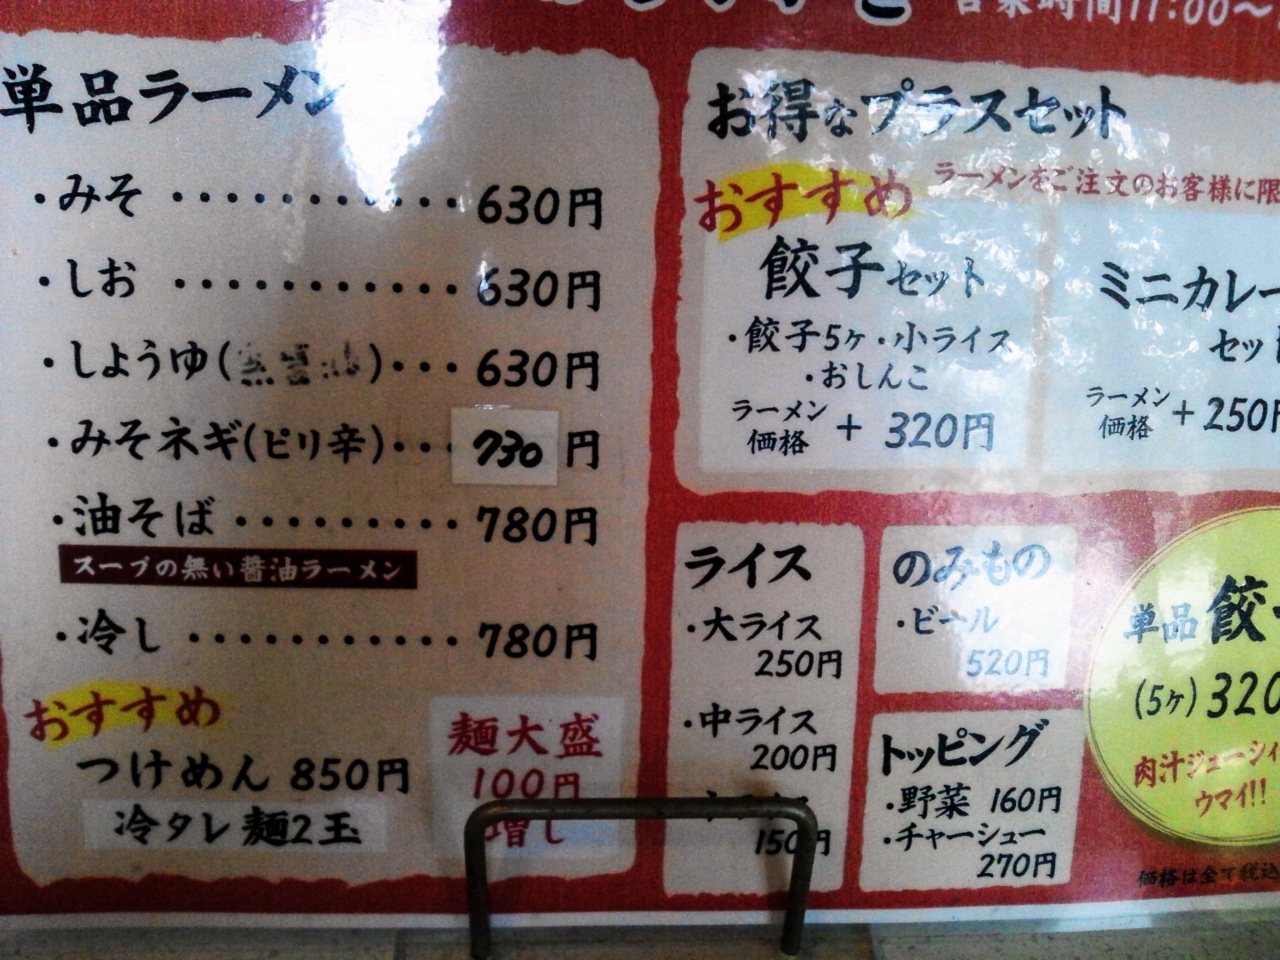 営業時間11:00〜
単品ラーメン
・みそ ・・・・・・・・・・・ 630円
・しお ・・・・・・・・・・・ 630円
・しょうゆ( )・・・ 630円
・みそネギ(ピリ辛)・・・ 730円
・油そば ・・・・・・・・・ 780円
スープの無い醤油ラーメン
・冷し ・・・・・・・・・・・ 780円
おすすめ
つけめん 850円
冷タレ 麺2玉
麺大盛
100円
増し
お得なプラスセット
おすすめ
ラーメンをご注文のお客様に限
餃子セット
・餃子5ヶ・小ライス
・おしんこ
ラーメン価格 + 320円
ミニカレー
セット
ラーメン価格 + 250円
ライス
・大ライス
250円
・中ライス
200円
150円
のみもの
・ビール
520円
トッピング
・野菜 160円
・チャーシュー
270円
単品 餃
(5ヶ) 320
肉汁ジューシィ
ウマイ!!
価格は全て税込